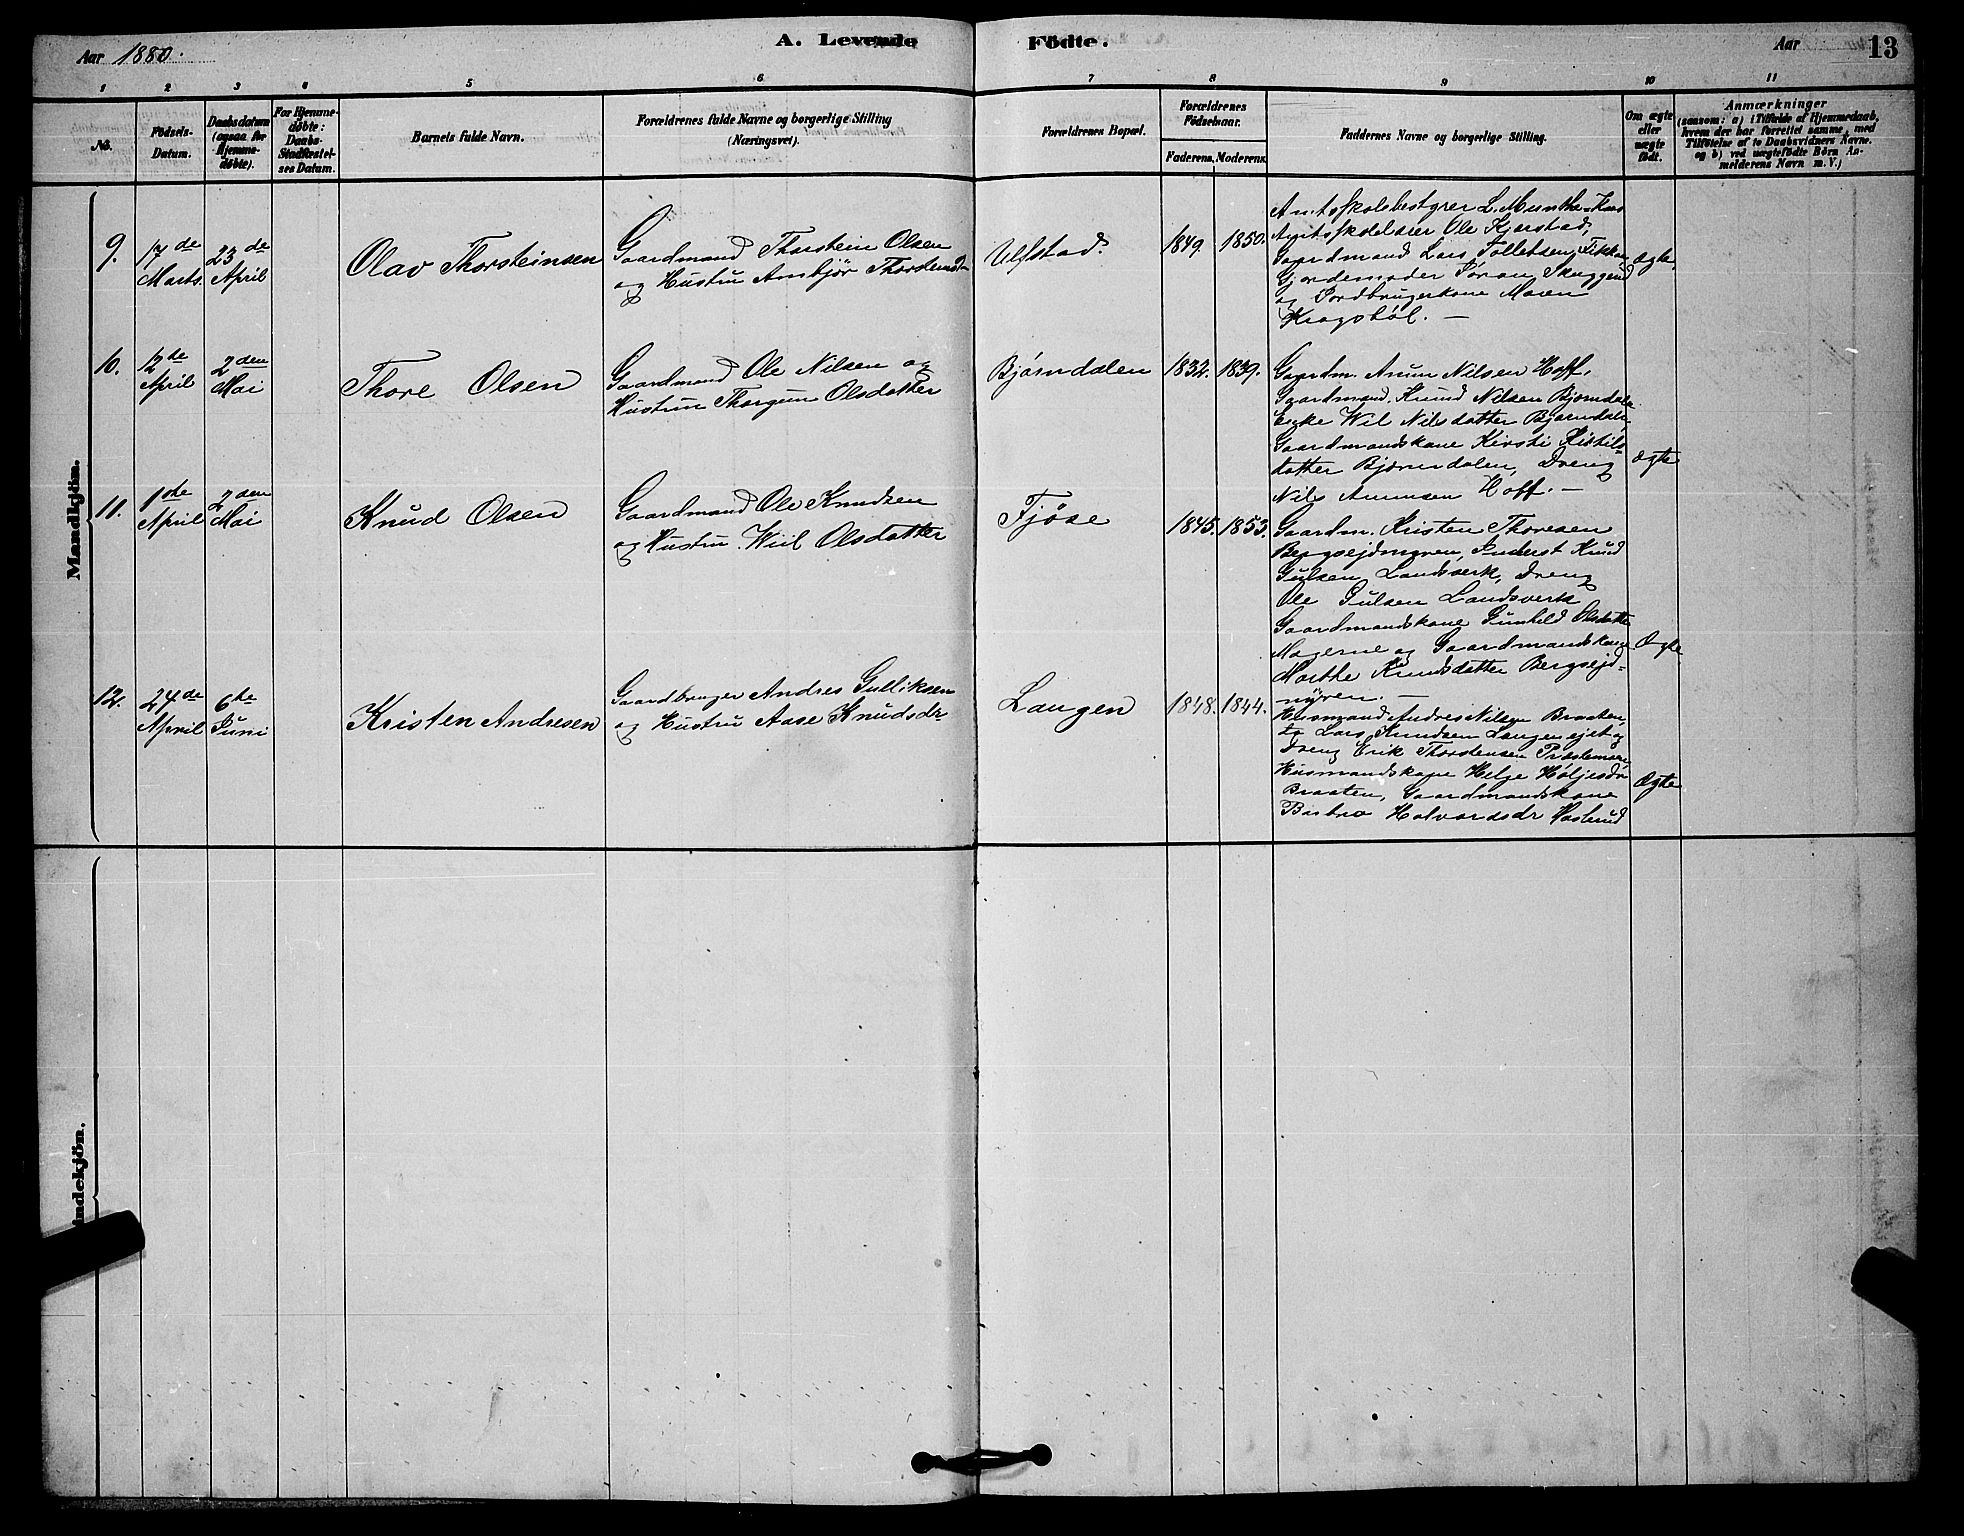 Aar 1880.
A. Levende Födte.
Aar
13
1 2 3 4 5 6 7 8 9 10 11
No.
Födsels-
Datum.
Daabsdatum
(ogsaa for
Hjemme-
döbte).
For Hjemme-
döbte:
Daabs-
Stadfæstel-
ses Datum.
Barnets fulde Navn.
Forældrenes fulde Navne og borgerlige Stilling
(Næringsvei).
Forældrenes Bopæl.
Forældrenes
Födselsaar.
Faderens. Moderens.
Faddernes Navne og borgerlige Stilling.
Om ægte
eller
uægte
födt.
Anmærkninger
(saasom: a) i Tilfælde af Hjemmedaab,
hvem der har forrettet samme, med
Tilföielse af to Daabsvidners Navne,
og b) ved uægtefödte Börn An-
melderens Navn m. V.)
Mandkjön.
9.
17de
Marts.
23de
April
Olav Thorsteinsen
Gaardmand Thorstein Olsen
og Hustru Ambjör
Ulfstad.
1849
1850.
Amtsskolebestyrer L. Munthe-Kaas
Amtsskolelærer Ole Kjerstad,
Gaardmand Lars Tollefsen
Gjordemoder Søran Skuggerud
og Jordbrugerkone Maren
Kragsböl. —
ægte.
10.
12te
April
2den
Mai
Thore Olsen
Gaardmand Ole Nilsen og
Hustru Thorgun Olsdatter
Björndalen
1832.
1839.
Gaardm. Anun Nilsen Hoff,
Gaardmand. Knud Nilsen Bjørndale
Enke Wil Nilsdatter Bjørndale,
Gaardmandskone Kirsti Kittils-
datter Bjørndalen, Dreng
Nils Anunsen Hoff. —
ægte
11.
1ste
April
2den
Mai
Knud Olsen
Gaardmand Ole Knudsen
og Hustru. Wiil Olsdatter
Fjöse
1845.
1853.
Gaardm. Kristen Thoresen
Bergsejdnyren, Inderst Knud
Gulsen Landsverk, Dreng
Ole Gulsen Landsverk
Gaardmandskone Gunhild Olsdatter
Mogerne og Gaardmandskone
Marthe Knudsdatter Bergsejd-
nyren. —
Ægte
12.
24de
April
6te
Juni
Kristen Andresen
Gaardbruger Andres Gulliksen
og Hustru Aase Knudsdr
Langen
1848.
1844.
Husmand Andres Nilsen Braaten,
do Lars Knudsen Langen ejet og
Dreng Erik Thorstensen
Husmandskone Helge Höljesdr
Braaten, Gaardmandskone
Halvordsdr
Ægte
indekjön.